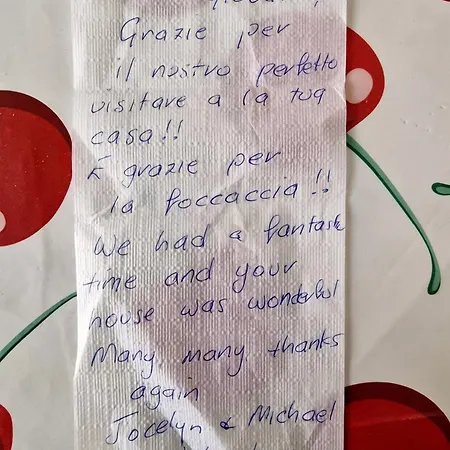 Grazie per
il nostro perfetto
visitare a la tua
casa!!
E grazie per
la foccaccia!!
We had a fantastic
time and your
house was wonderful
Many many thanks
again
Jocelyn & Michael